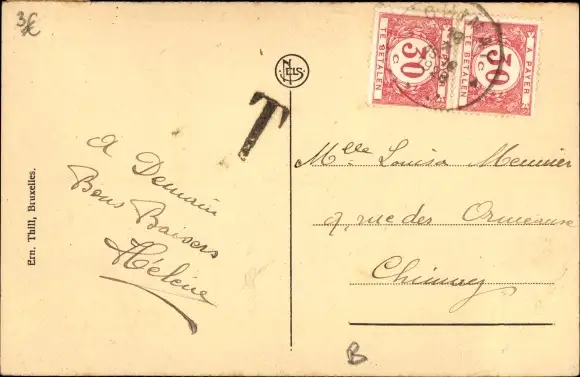 3€
30 c
À PAYER
TE BETALEN
30 c
À PAYER
TE BETALEN
NELS
T
À Demain
Bons Baisers
Hélène
Mlle Louisa Meunier
9, rue des Ormeaux
Chimay
Ern. Thill, Bruxelles.
B